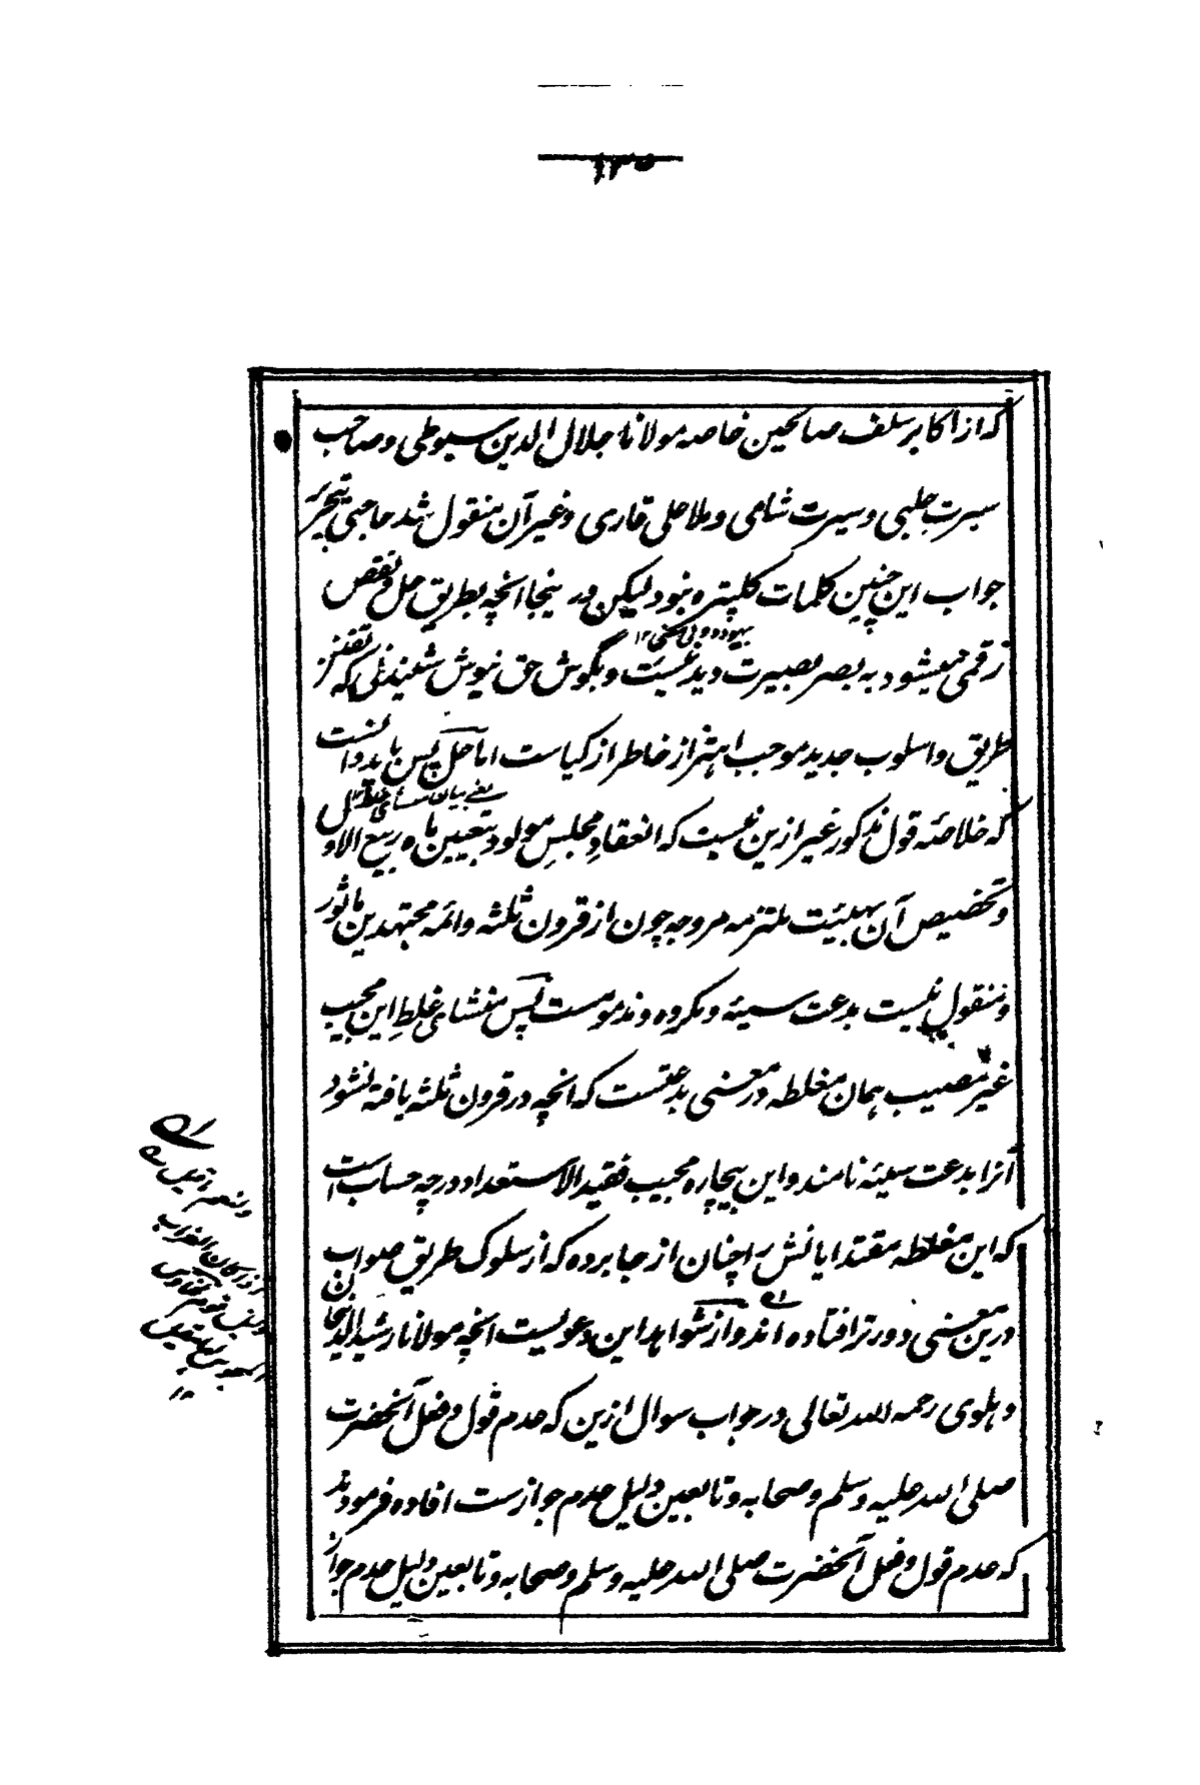 ۱۳۵
که از اکابر سلف صالحین خاصه مولانا جلال الدین سیوطی و صاحب
سیرت حلبی و سیرت شامی و ملا علی قاری و غیر آن منقول شد حاجتی بتحریر
جواب این چنین کلمات کلپتره نبود لیکن در ینجا انچه بطریق حل و نقض
بیهوده و بی معنی ۱۲
رقمی میشود به بصر بصیرت دیدنیست و بگوش حق نیوش شنیدنی که تفنن
طریق و اسلوب جدید موجب اهتزاز خاطر ازکیاست اما حل پس باید دانست
یعنی بیان منشای غلط ۱۲
که خلاصه قول مذکور غیر ازین نیست که انعقاد مجلس مولود بتعیین ماه ربیع الاول
و تخصیص آن بهیئت ملتزمه مروجه چون از قرون ثلثه و ائمه مجتهدین ماثور
و منقول نیست بدعت سیئه و مکروه و مذمومست پس منشای غلط این مجیب
غیر مصیب همان مغلطه در معنی بدعتست که انچه در قرون ثلثه یافته نشود
آنرا بدعت سیئه نامند و این بیچاره مجیب فقید الاستعداد در چه حساب است
که این مغلطه مقتدایانش را چنان از جا برده که از سلوک طریق صواب
درین معنی دورتر افتاده اند و از شواهد این دعویست انچه مولانا رشید الدینخان
دهلوی رحمه الله تعالی در جواب سوال ازین که عدم قول و فعل آنحضرت
صلی الله علیه و سلم و صحابه و تابعین دلیل عدم جوازست افاده فرمودند
که عدم قول و فعل آنحضرت صلی الله علیه و سلم و صحابه و تابعین دلیل عدم جواز
ونعم ما قیل
اذا کان الغراب
دلیل قوم
۱۲